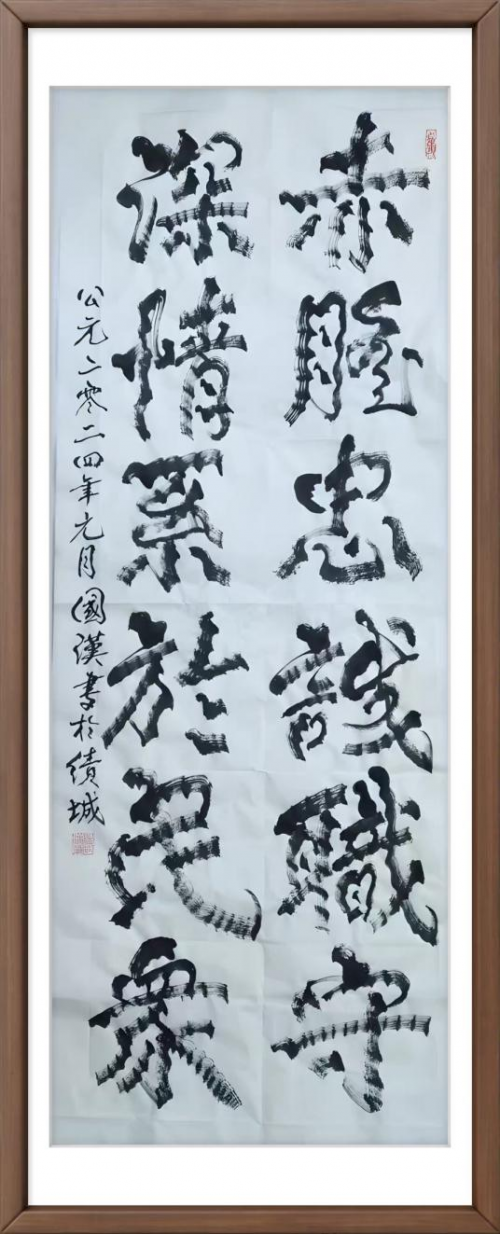 赤膽忠誠職守
深情系於民衆
公元二零二四年元月國漢書於績城